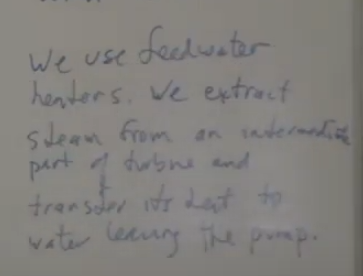 We use feedwater
heaters. We extract
steam from an intermediate
part of turbine and
transfer its heat to
water leaving the pump.